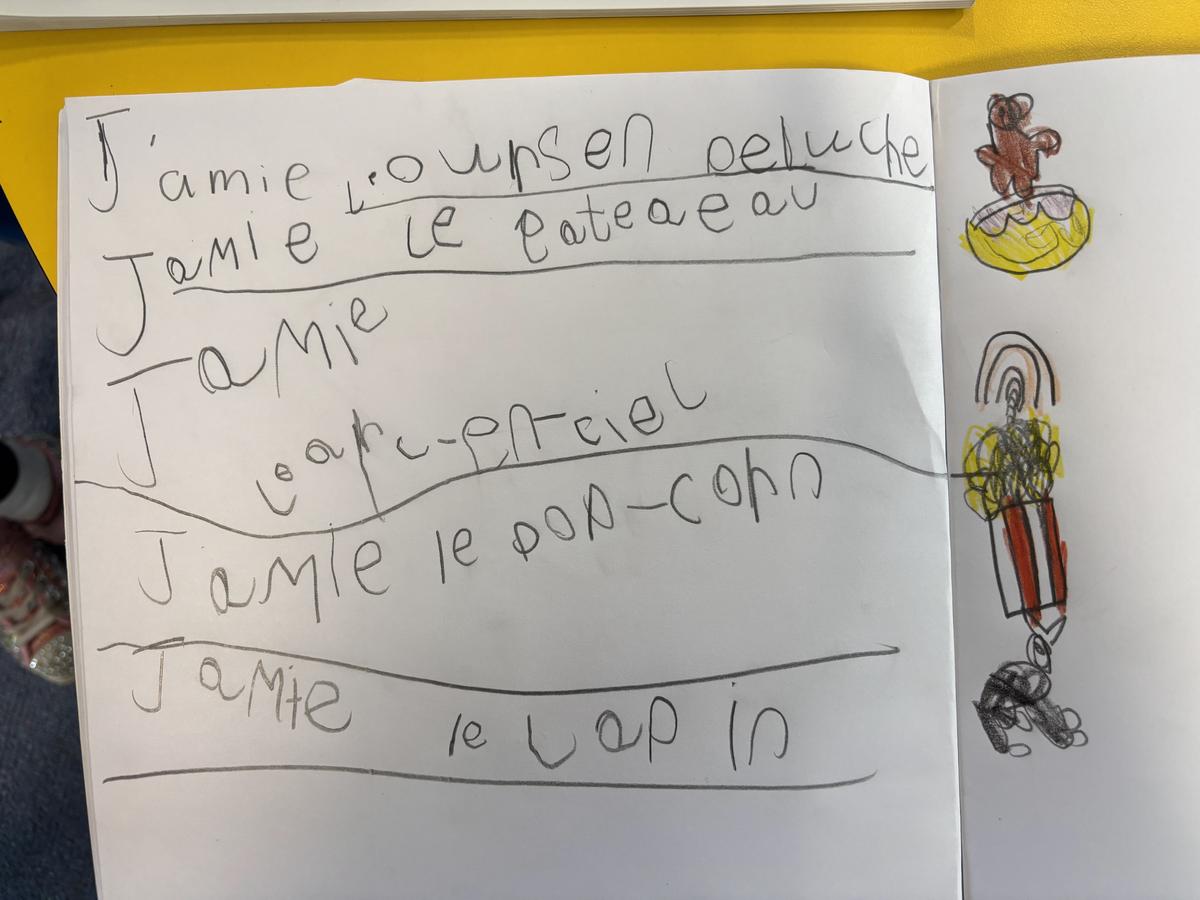 J'amie l'oursen peluche
Jamie le gateaeau
Jamie
l'arc-en-ciel
Jamie le pop-corn
Jamie le Lapin